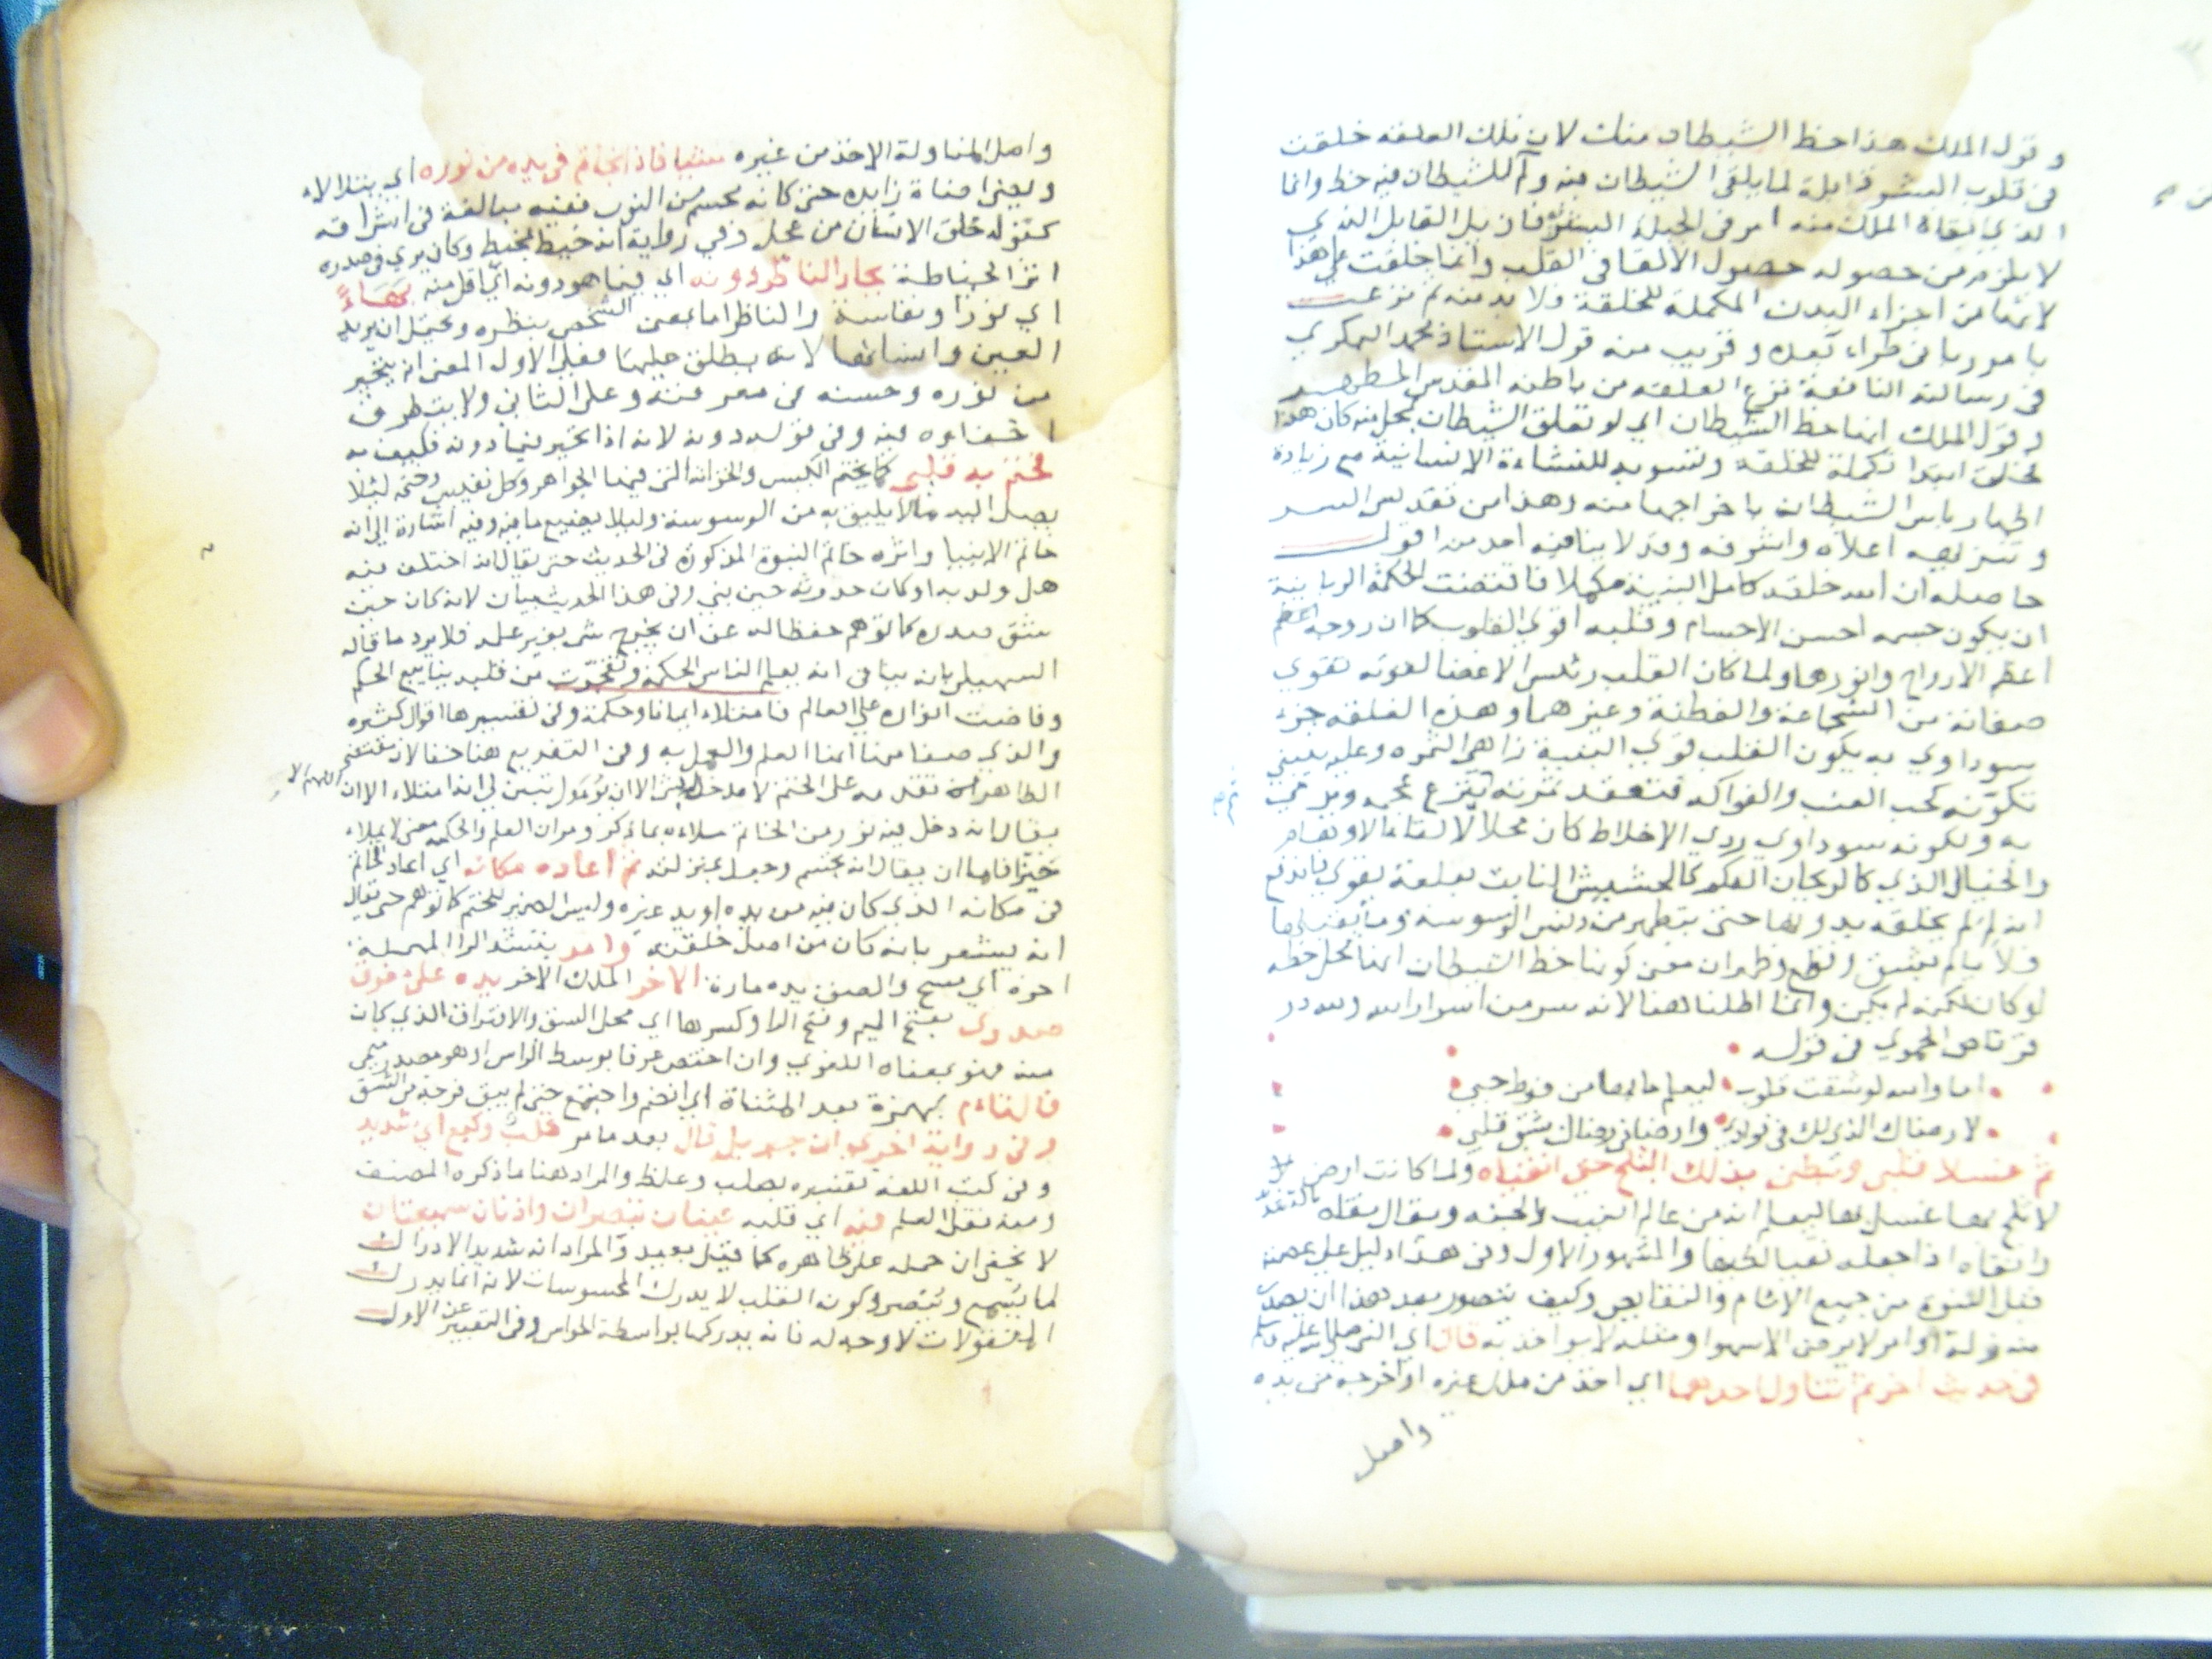 وقول الملك هذا حظ الشيطان منك لان تلك العلقه خلقت
فى قلوب البشر قابلة لما يلقى الشيطان فيه ولم للشيطان فيه حظ وانما
الذي نقاه الملك منه امر فى الجبلة البشرية فان بل القابل الذي
لا يلزم من حصوله حصول الالقا فى القلب وانما خلقت على هذا
لانها من اجزاء البدن المكملة للخلقة فلا بد منه ثم نزعت
بعده وقريب منه قول الاستاذ محمد البكري
فى رسالته النافعة نزع العلقه من باطنه المقدس المطهر
وقول الملك انما حظ الشيطان اي لو تعلق الشيطان بمحل منه كان هذا
تكملة للخلقه وتسويد للنشاءة الانسانية مع زيادة
اظهار ياس الشيطان باخراجها منه وهذا من تقديس السر
وتنزيهه اعلاه واشرفه وقد لا ينافيه احد من اقول
حاصله ان الله خلقه كامل البنية مكملا فاقتضت الحكمة الربانية
ان يكون جسمه احسن الاجسام وقلبه اقوي القلوب كما ان روحه اعظم
اعظم الارواح وانورها ولما كان القلب رئيس الاعضا لقوته تقوي
صفاته من الشجاعة والفطنة وغيرهما وهذه العلقه جزء
سوداوي به يكون القلب قوي البنية زاهي الثمره وعليه يبتني
تكونه كحب العنب والفواكه فتنعقد ثمرته ينزع عجمه ويرمي
به ولكونه سوداوي ردي الاخلاط كان محلا لالقاء الاوهام
والخيال الذي كالريحان العكر كالحشيش النابت بقلعه يقوي
انه لم لم يخلقه بدونها حتى يتطهر من دنس الوسوسة وما يقتضيها
فلا يالم بشق وقطع وظهر ان معنى كونها حظ الشيطان انها محل حظه
لو كان لكنه لم يكن وانما اطلنا هنا لانه سر من اسرار الله ولله در
قرناص الحموي فى قوله
اما والله لو شقت قلوب ليعلم ما بها من فرط حبي
لارضاك الذي لك فى فوادي وارضاني رضاك بشق قلبي
ثم غسلا قلبي وبطني بذلك الثلج حتى انقياه ولما كانت ارض مكة
لا ثلج بها غسل بها ليعلم انه من عالم الغيب والجنه ويقال نقاه بالتشديد
وانقاه اذا جعله نقيا نظيفا والمشهور الاول وفى هذا دليل على عصمته
قبل النبوة من جميع الاثام والنقايص وكيف يتصور بعد هذا ان يصدر
منه زلة او امر لا يرضى الا سهوا ومثله لا يواخذ به قال اي النبي صلى الله عليه وسلم
فى حديث اخر ثم تناول احدهما اي اخذ من ملك غيره او اخرجه من يده
واصل
واصل المناولة الاخذ من غيره شيا فاذا بخاتم فى يده من نوره اي يتلالاء
ويضئ اضاة زايده حتى كانه مجسم من النور ففيه مبالغة فى اشراقه
كقوله خلق الانسان من عجل وفي رواية انه خيط المخيط وكان يري فى صدره
اثر الخياطة يحار الناظر دونه اي فيما هو دونه اي اقل منه بهاءً
اي نورا ونفاسة والناظر اما بمعنى الشخص ينظره ويحتمل ان يريد
العين وانسانها لانه يطلق عليهما فعلى الاول المعنى انه يتحير
من نوره وحسنه فى معرفته وعلى الثاني ولا يتطرف
فيه وفى قوله دونه لانه اذا تحير فيما دونه فكيف به
فختم به قلبي كما يختم الكيس والخزانة التي فيها الجواهر وكل نفيس وختمه ليلا
يصل اليه مالا يليق به من الوسوسة وليلا يضيع ما فيه وفيه اشارة الى انه
خاتم الانبيا واثره خاتم النبوة المذكورة فى الحديث حتى يقال انه اختلف فيه
هل ولد به او كان حدوثه حين نبي وفى هذا الحديث بيان لانه كان حين
شق صدره كما توهم حفظا له عن ان يخرج شى بغير علمه فلا يرد ما قاله
السهيلي بانه ينافى انه يعلم الناس الحكمة وتفجرت من قلبه ينابيع الحكم
وفاضت انواره على العالم فامتلاء ايمانا وحكمة وفى تفسيرها اقوال كثيره
والذي صفا منها انها العلم والعمل به وفى التفريع هنا خفا لان مقتضى
الظاهر انه تقدمه على الختم لا مدخل الا ان يؤول تبين لي انه امتلاء الا ان اللهم الا
يقال انه دخل فيه نور من الخاتم ملاءه بما ذكر ومر ان العلم والحكمه معنى لا يملاء
حيزا فاما ان يقال انه تجسم وجعل بمنزلته ثم اعاده مكانه اي اعاد الخاتم
فى مكانه الذي كان فيه من يده او يد غيره وليس الضمير للختم كما توهم حتى يقال
انه يشعر بانه كان من اصل خلقته وامر بتشد الرا المهملة
اخره اي مسح والصق يده ماره الاخر الملك الاخر يده على مفرق
صدري بفتح الميم وفتح الرا وكسرها اي محل الشق والافتراق الذي كان
منه فهو بمعناه اللغوي وان اختص عرفا بوسط الراس او هو مصدر ميمي
فالتام بهمزة بعد المثناة اي انضم واجتمع حتى لم يبق فرجة من الشق
وفى رواية اخري ان جبريل قال بعد ما مر قلب وكيع اي شديد
وفى كتب اللغه تفسيره بصلب وغلظ والمراد هنا ما ذكره المصنف
ومنه نقل العلم فيه اي قلبه عينان تبصران واذنان سميعتان
لا يخفى ان حمله على ظاهره كما قيل بعيد والمراد انه شديد الادراك
لما يسمع ويبصر وكون القلب لا يدرك المحسوسات لانه انما يدرك
المعقولات لا وجه له فانه يدركها بواسطة الحواس وفى التعبير عن الاول